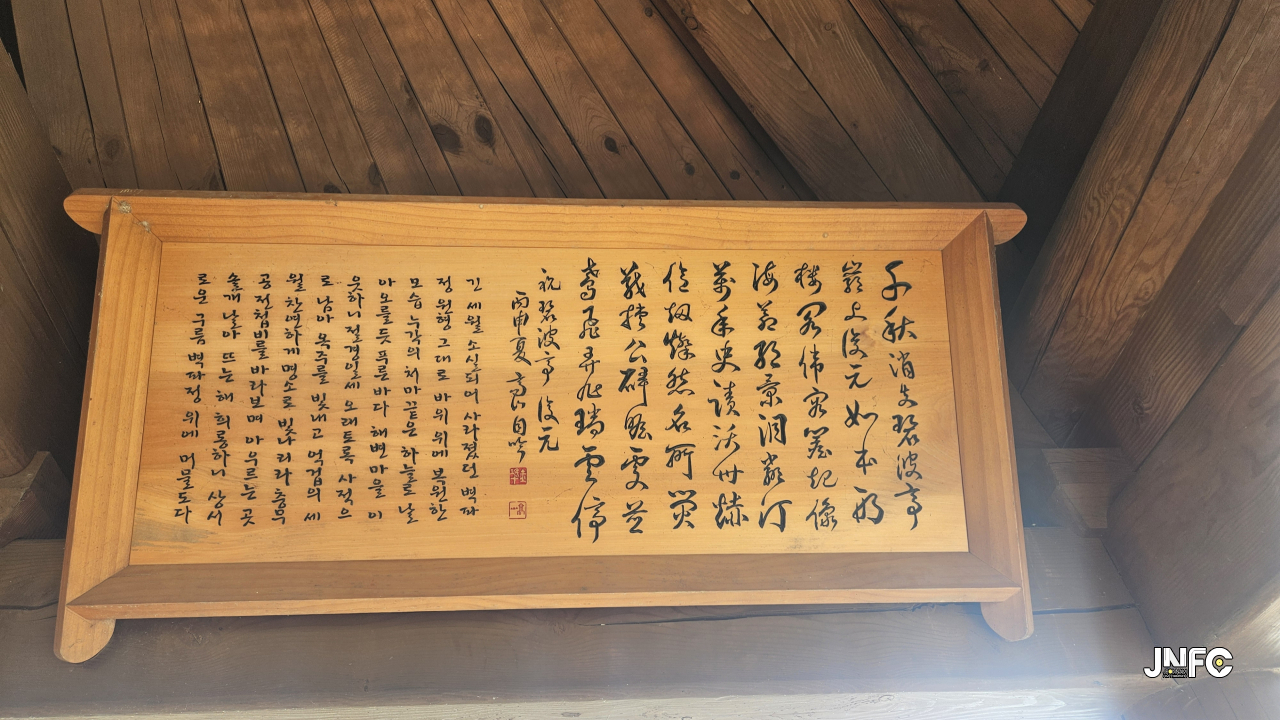 千秋消失碧波亭
巖上復元如本形
樓閣偉容簷起像
海 景 汀
萬年史蹟沃州赫
億劫燦然名所熒
戰捷公碑瞻 並
鳶飛弄旭瑞雲停
祝碧波亭復元
丙申夏 自吟
긴 세월 소실되어 사라졌던 벽파
정 원형 그대로 바위 위에 복원한
모습 누각의 처마 끝은 하늘로 날
아오를 듯 푸른 바다 해변마을 이
웃하니 절경일세 오래토록 사적으
로 남아 옥주를 빛내고 억겁의 세
월 찬연하게 명소로 빛나리라 충무
공 전첩비를 바라보며 아우르는 곳
솔개 날아 뜨는 해 희롱하니 상서
로운 구름 벽파정 위에 머물도다
JNFC